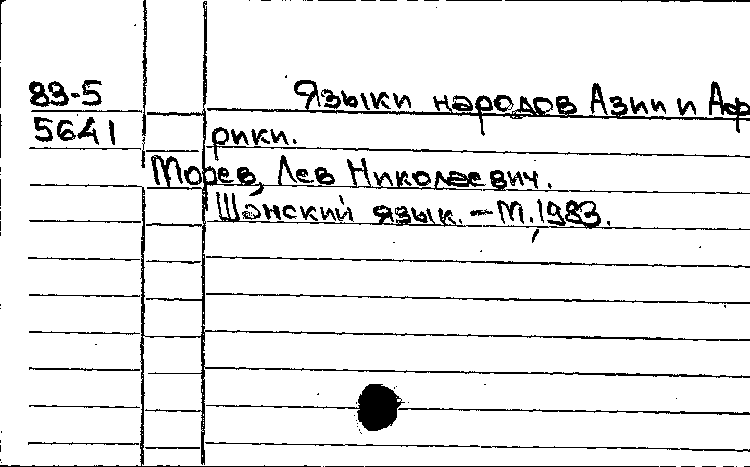 83-5 Языки народов Азии и Аф
5641 рики.
Морев, Лев Николаевич.
Шанский язык. - М., 1983.